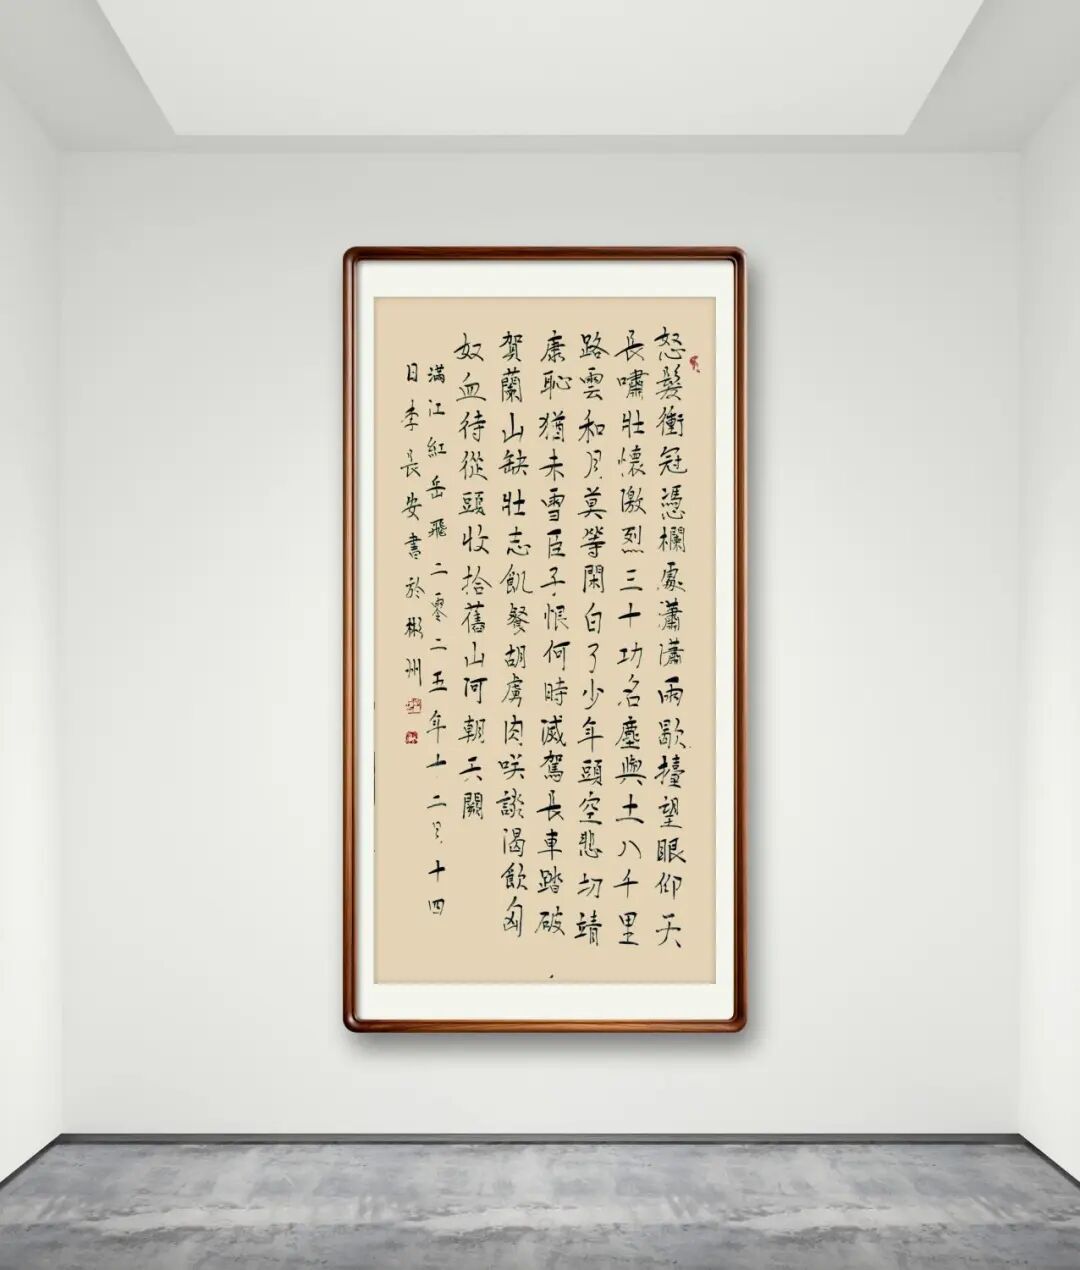 怒髮衝冠憑欄處瀟瀟雨歇擡望眼仰天
長嘯壯懷激烈三十功名塵與土八千里
路雲和月莫等閑白了少年頭空悲切靖
康恥猶未雪臣子恨何時滅駕長車踏破
賀蘭山缺壯志飢餐胡虜肉咲談渴飲匈
奴血待從頭收拾舊山河朝天闕
滿江紅岳飛二零二五年十二月十四
日李長安書於彬州